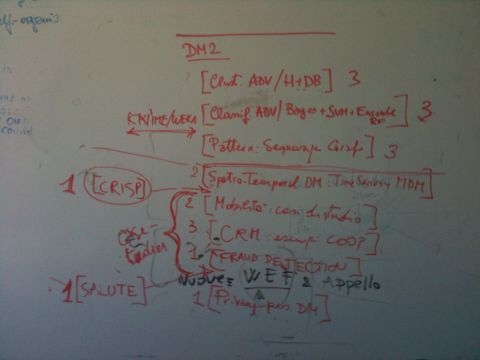 self-organis
DM2
[Clust. ADV/H+DB] 3
KNIME/WEKA [Classif ADV/Bayes+SVM+Ensemble RF] 3
[Pattern: Sequenze Grafi] 3
1 [CRISP] 2 [Spatio-Temporal DM: Time Series, MDM]
2 [Mobilità: casi di studio]
case studies 3 [CRM: esempi COOP]
1 [FRAUD DETECTION]
Nuove WEF & Appello
1 [SALUTE] 1 [Privacy-pres DM]